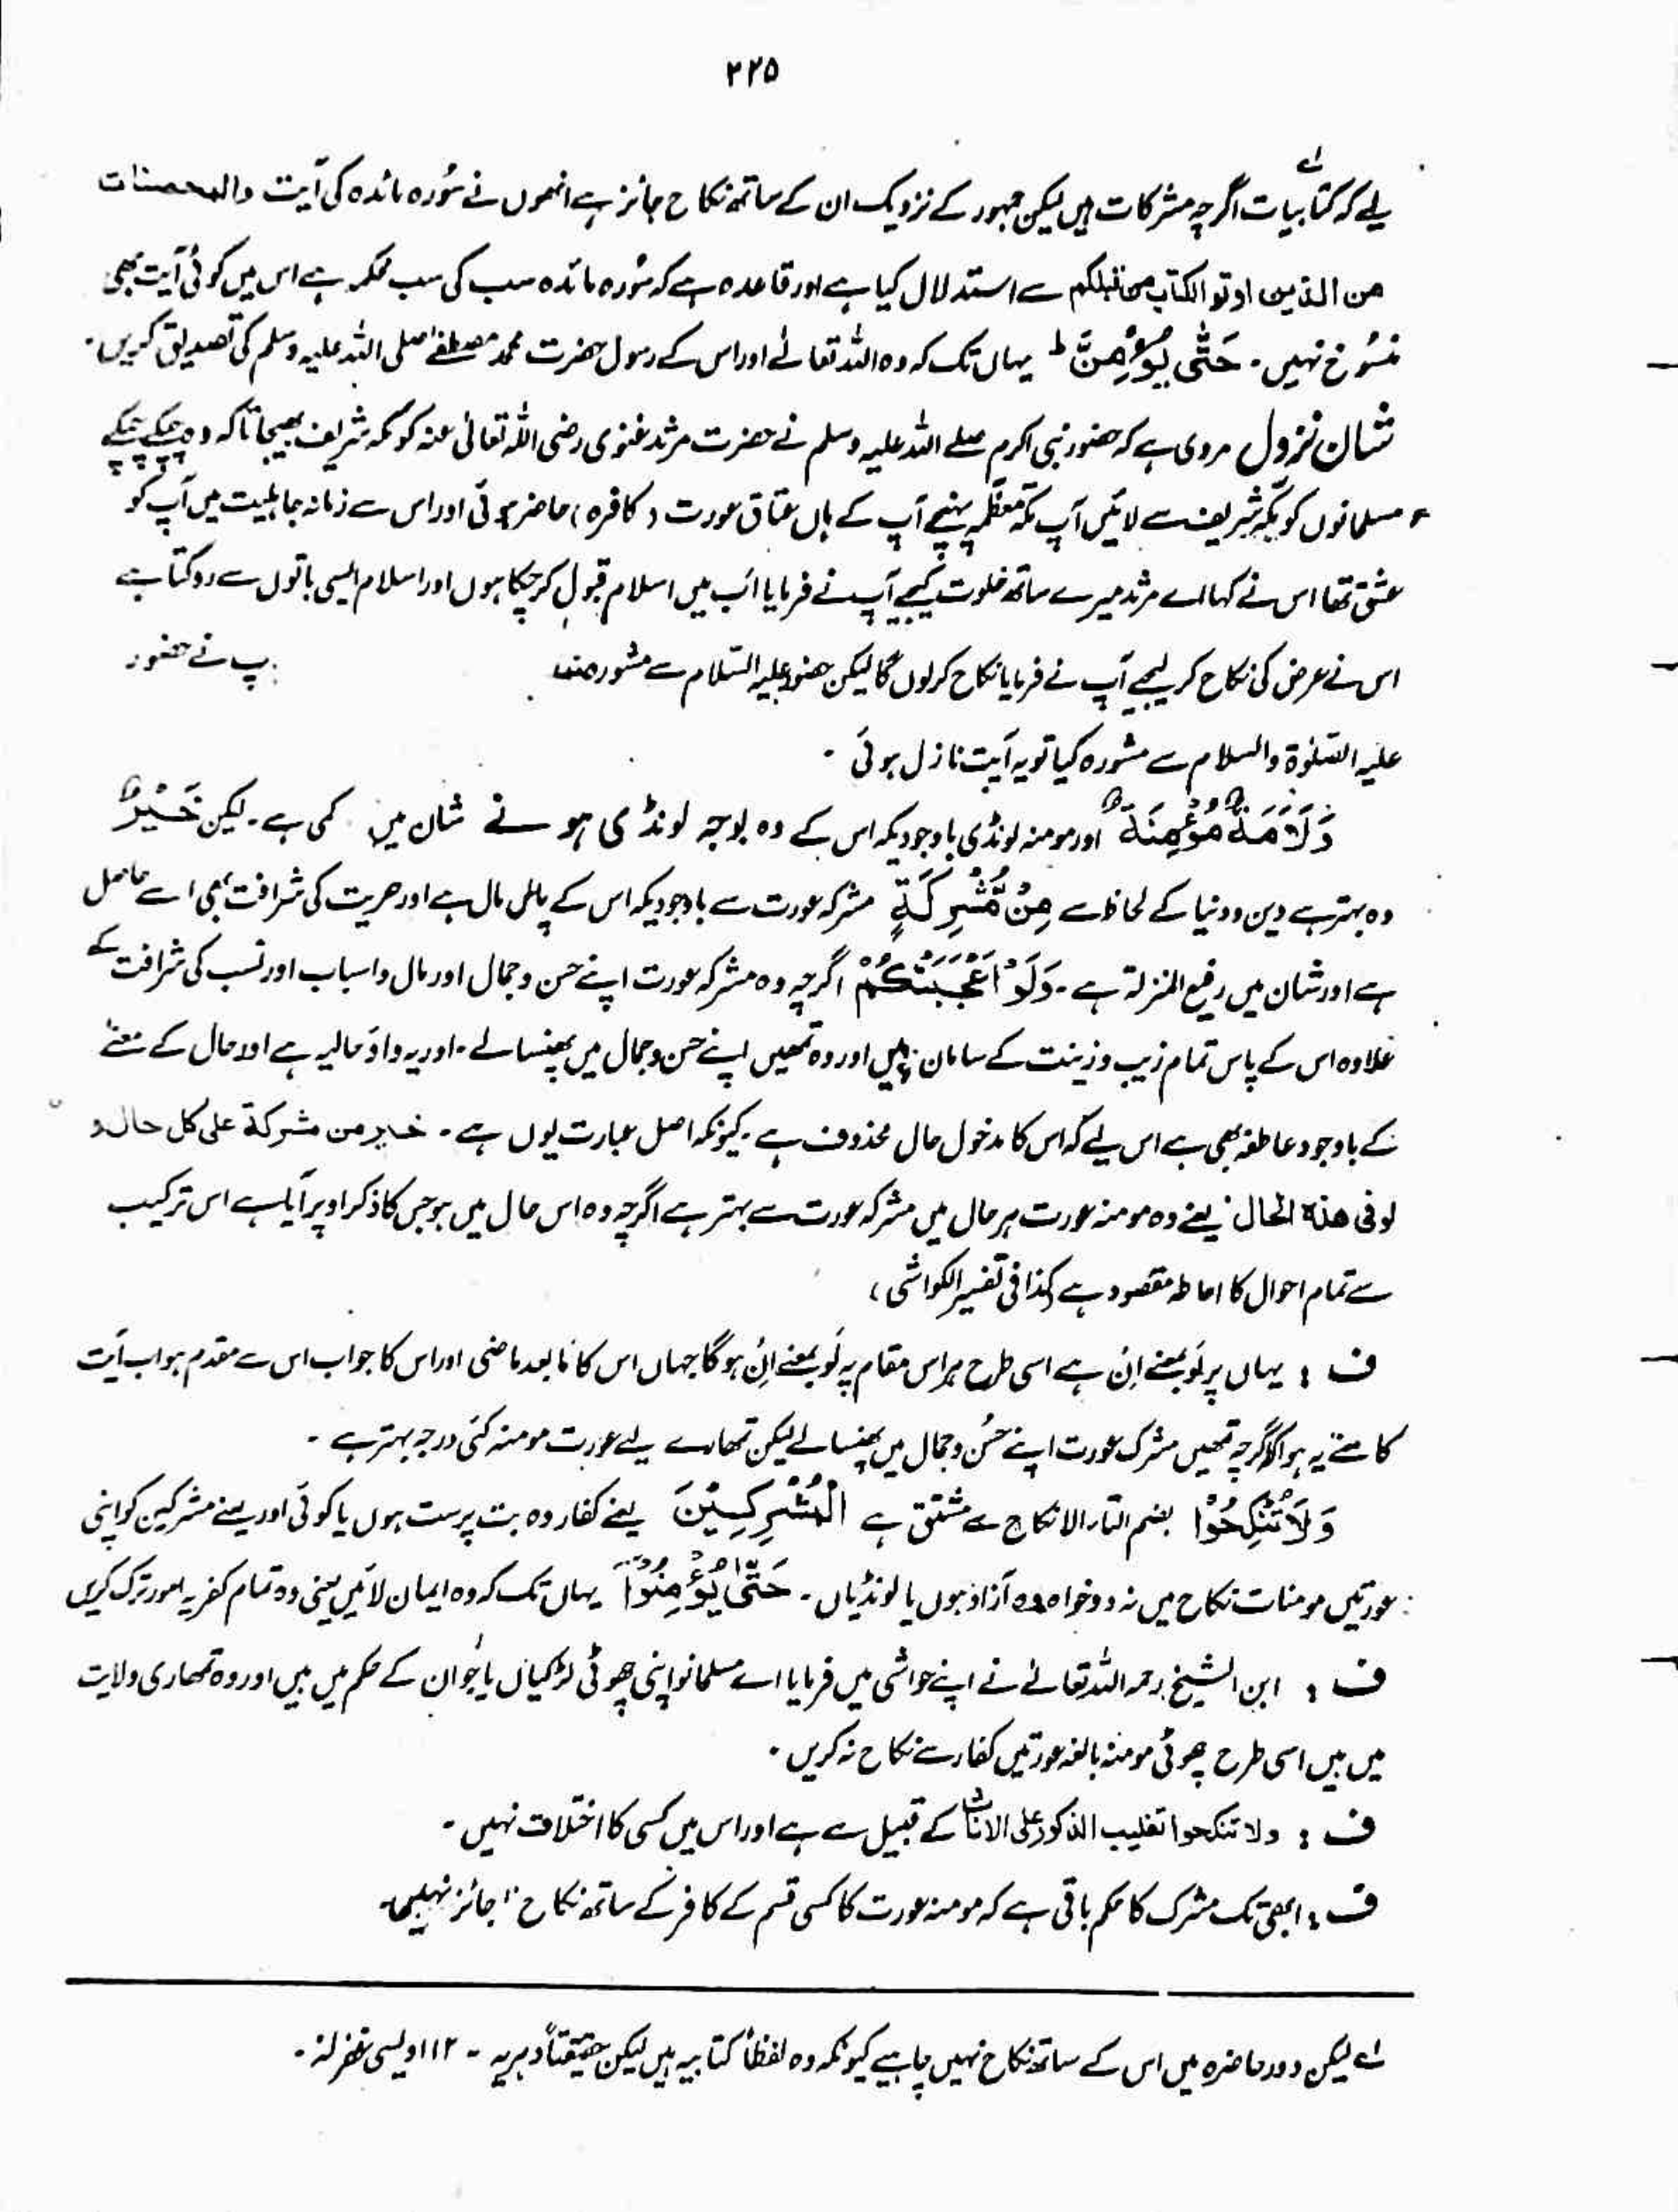 ۲۲۵
لیے کہ کتابیات اگرچہ مشرکات ہیں لیکن جمہور کے نزدیک ان کے ساتھ نکاح جائز ہے انھوں نے سُورہ مائدہ کی آیت والمحصنات
من الذین اوتوالکتاب من قبلکم سے استدلال کیا ہے اور قاعدہ ہے کہ سُورہ مائدہ سب کی سب محکمہ ہے اس میں کوئی آیت بھی
منسُوخ نہیں ۔ حَتّٰی یُؤْمِنَّ ط یہاں تک کہ وہ اللہ تعالےٰ اور اس کے رسول حضرت محمد مصطفےٰ صلی اللہ علیہ وسلم کی تصدیق کریں ۔
شان نزول مروی ہے کہ حضور نبی اکرم صلے اللہ علیہ وسلم نے حضرت مرثد غنوی رضی اللہ تعالیٰ عنہ کو مکہ شریف بھیجا تاکہ وہ چپکے چپکے
مسلمانوں کو مکہ شریف سے لائیں آپ مکہ معظمہ پہنچے آپ کے ہاں عناق عورت (کافرہ) حاضر ہوئی اور اس سے زمانہ جاہلیت میں آپ کو
عشق تھا اس نے کہا اے مرثد میرے ساتھ خلوت کیجیے آپ نے فرمایا اَب میں اسلام قبول کرچکا ہوں اور اسلام ایسی باتوں سے روکتا ہے
اس نے عرض کی نکاح کر لیجیے آپ نے فرمایا نکاح کرلوں گا لیکن حضور علیہ السّلام سے مشورہ پ نے حضور
علیہ الصّلوٰۃ والسلام سے مشورہ کیا تو یہ آیت نازل ہوئی ۔
وَلَاَمَۃٌ مُّؤْمِنَۃٌ اور مومنہ لونڈی باوجودیکہ اس کے وہ بوجہ لونڈی ہونے شان میں کمی ہے ۔ لیکن خَیْرٌ
وہ بہتر ہے دین و دنیا کے لحاظ سے مِنْ مُّشْرِکَۃٍ مشرکہ عورت سے باوجودیکہ اس کے پاس مال ہے اور حریت کی شرافت بھی اسے حاصل
ہے اور شان میں رفیع المنزلۃ ہے ۔ وَلَوْ اَعْجَبَتْکُمْ اگرچہ وہ مشرکہ عورت اپنے حسن و جمال اور مال و اسباب اور نسب کی شرافت کے
علاوہ اس کے پاس تمام زیب و زینت کے سامان ہیں اور وہ تمھیں اپنے حسن و جمال میں پھنسا لے ۔ اور یہ واؤ حالیہ ہے اور حال کے معنے
کے باوجود عاطفہ بھی ہے اس لیے کہ اس کا مدخول حال محذوف ہے ۔ کیونکہ اصل عبارت یوں ہے ۔ خیر من مشرکۃ علی کل حال و
لو فی ھذہ الحال یعنے وہ مومنہ عورت ہر حال میں مشرکہ عورت سے بہتر ہے اگرچہ وہ اس حال میں ہو جس کا ذکر اوپر آیا ہے اس ترکیب
سے تمام احوال کا احاطہ مقصود ہے (کذا فی تفسیر الکواشی)
ف : یہاں پر لَو بمعنے اِن ہے اسی طرح ہر اس مقام پہ لَو بمعنے اِن ہوگا جہاں اس کا مابعد ماضی اور اس کا جواب اس سے مقدم ہو اب آیت
کا معنے یہ ہوا کہ اگرچہ تمھیں مشرک عورت اپنے حُسن و جمال میں پھنسا لے لیکن تمھارے لیے عورت مومنہ کئی درجہ بہتر ہے ۔
وَلَا تُنْکِحُوْا بضم التاء الانکاح سے مشتق ہے الْمُشْرِکِیْنَ یعنے کفار وہ بت پرست ہوں یا کوئی اور یعنے مشرکین کو اپنی
عورتیں مومنات نکاح میں نہ دو خواہ وہ آزاد ہوں یا لونڈیاں ۔ حَتّٰی یُؤْمِنُوْا یہاں تک کہ وہ ایمان لائیں یعنی وہ تمام کفریہ امور ترک کریں
ف : ابن الشیخ رحمہ اللہ تعالےٰ نے اپنے حواشی میں فرمایا اے مسلمانو اپنی چھوٹی لڑکیاں یا جو ان کے حکم میں ہیں اور وہ تمھاری ولایت
میں ہیں اسی طرح چھوٹی مومنہ بالغہ عورتیں کفار سے نکاح نہ کریں ۔
ف : ولا تنکحوا تغلیب الذکور علی الاناث کے قبیل سے ہے اور اس میں کسی کا اختلاف نہیں ۔
ف : ابھی تک مشرک کا حکم باقی ہے کہ مومنہ عورت کا کسی قسم کے کافر کے ساتھ نکاح جائز نہیں ۔
لے لیکن دور حاضرہ میں اس کے ساتھ نکاح نہیں چاہیے کیونکہ وہ لفظاً کتابیہ ہیں لیکن حقیقتاً دہریہ ۔ ۱۲ اویسی غفرلہ ۔